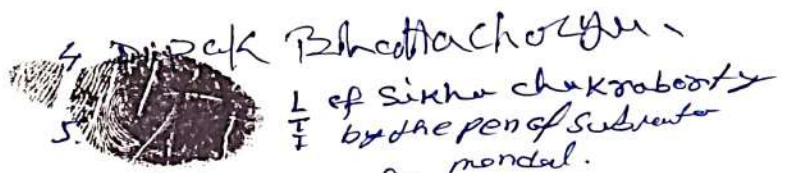 4. Dipak Bhattacharyya.
5. LTI of Sikha Chakraborty
by the pen of Subrata
mondal.